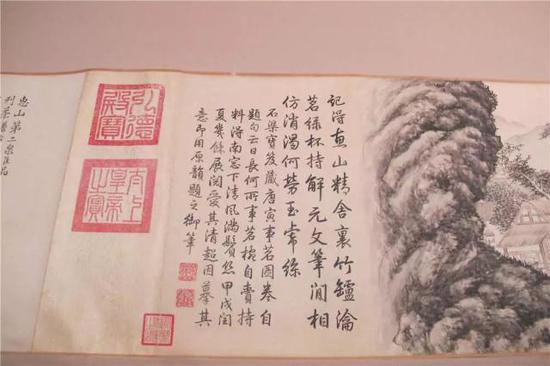 記得惠山精舍裏竹鑪瀹
茗綠杯持解元文筆閒相
仿消渴何勞玉常絲
石渠寶笈藏唐寅事茗圖卷自
題句云日長何所事茗椀自賫持
料得南窓下清風滿鬢絲甲戌閏
夏幾餘展閱愛其清超因摹其
意即用原韻題之御筆
弘德
殿寶
太上
皇帝
之寶
惠山第二泉